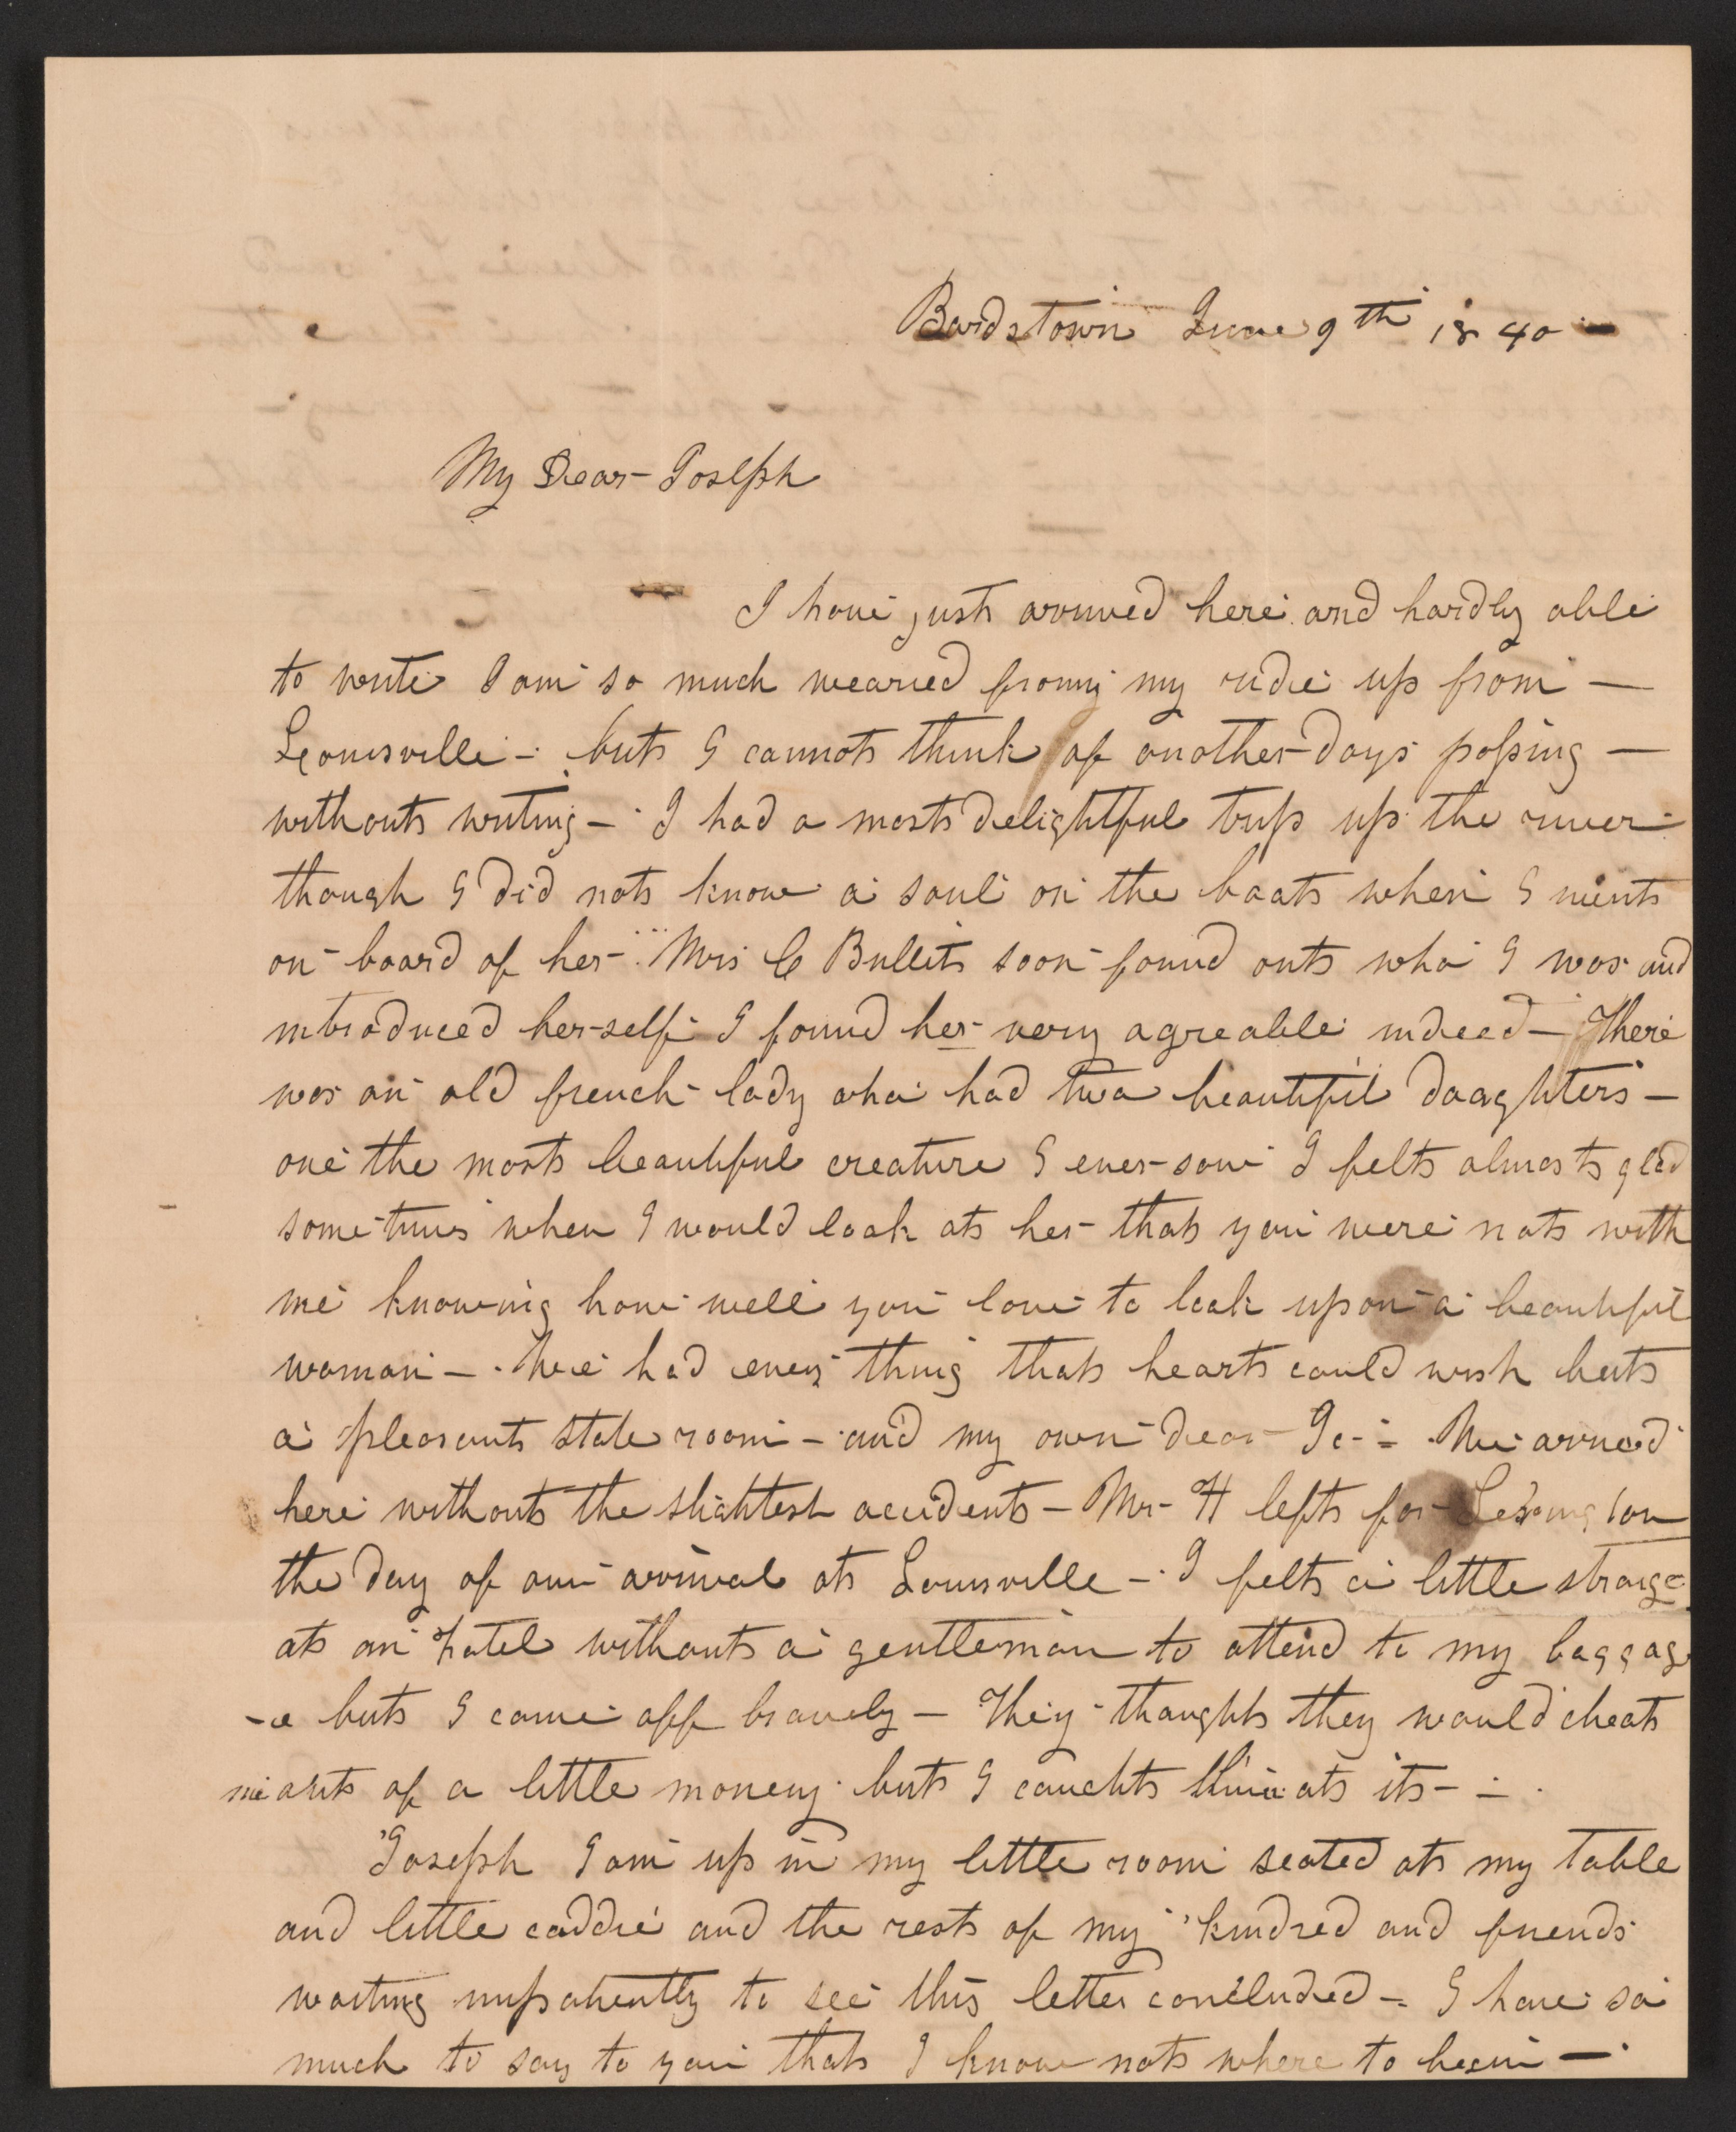 Bardstown June 9th 1840 -
My Dear Joseph
I have just arrived here and hardly able
to write I am so much wearied from my ride up from —
Louisville - but I cannot think of another days passing —
without writing - I had a most delightful trip up the river
though I did not know a soul on the boat when I went
on board of her - Mrs C Bullit soon found out who I was and
introduced her-self I found her very agreable indeed - There
was an old french lady who had two beautiful daughters -
one the most beautiful creature I ever saw I felt almost glad
some times when I would look at her that you were not with
me knowing how well you love to look upon a beautiful
woman - We had every thing that heart could wish but
a pleasant state room - and my own dear Jo - - We arrived
here without the slightest accident - Mr H left for Lexington
the day of our arrival at Louisville - I felt a little strange
at an hotel without a gentleman to attend to my baggag
-e but I came off bravely - They thought they would cheat
me out of a little money but I caught them at it - -
Joseph I am up in my little room seated at my table
and little caddie and the rest of my kindred and friends
waiting impatiently to see this letter concluded - I have so
much to say to you that I know not where to begin -